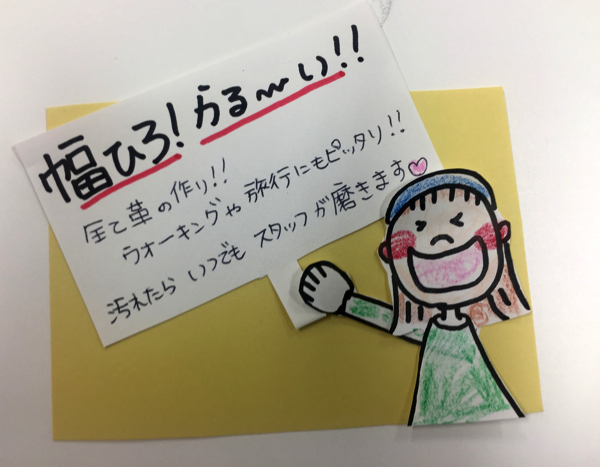 幅ひろ！かる〜い！！
全て革の作り！！
ウオーキングや旅行にもピッタリ！！
汚れたらいつでもスタッフが磨きます♡